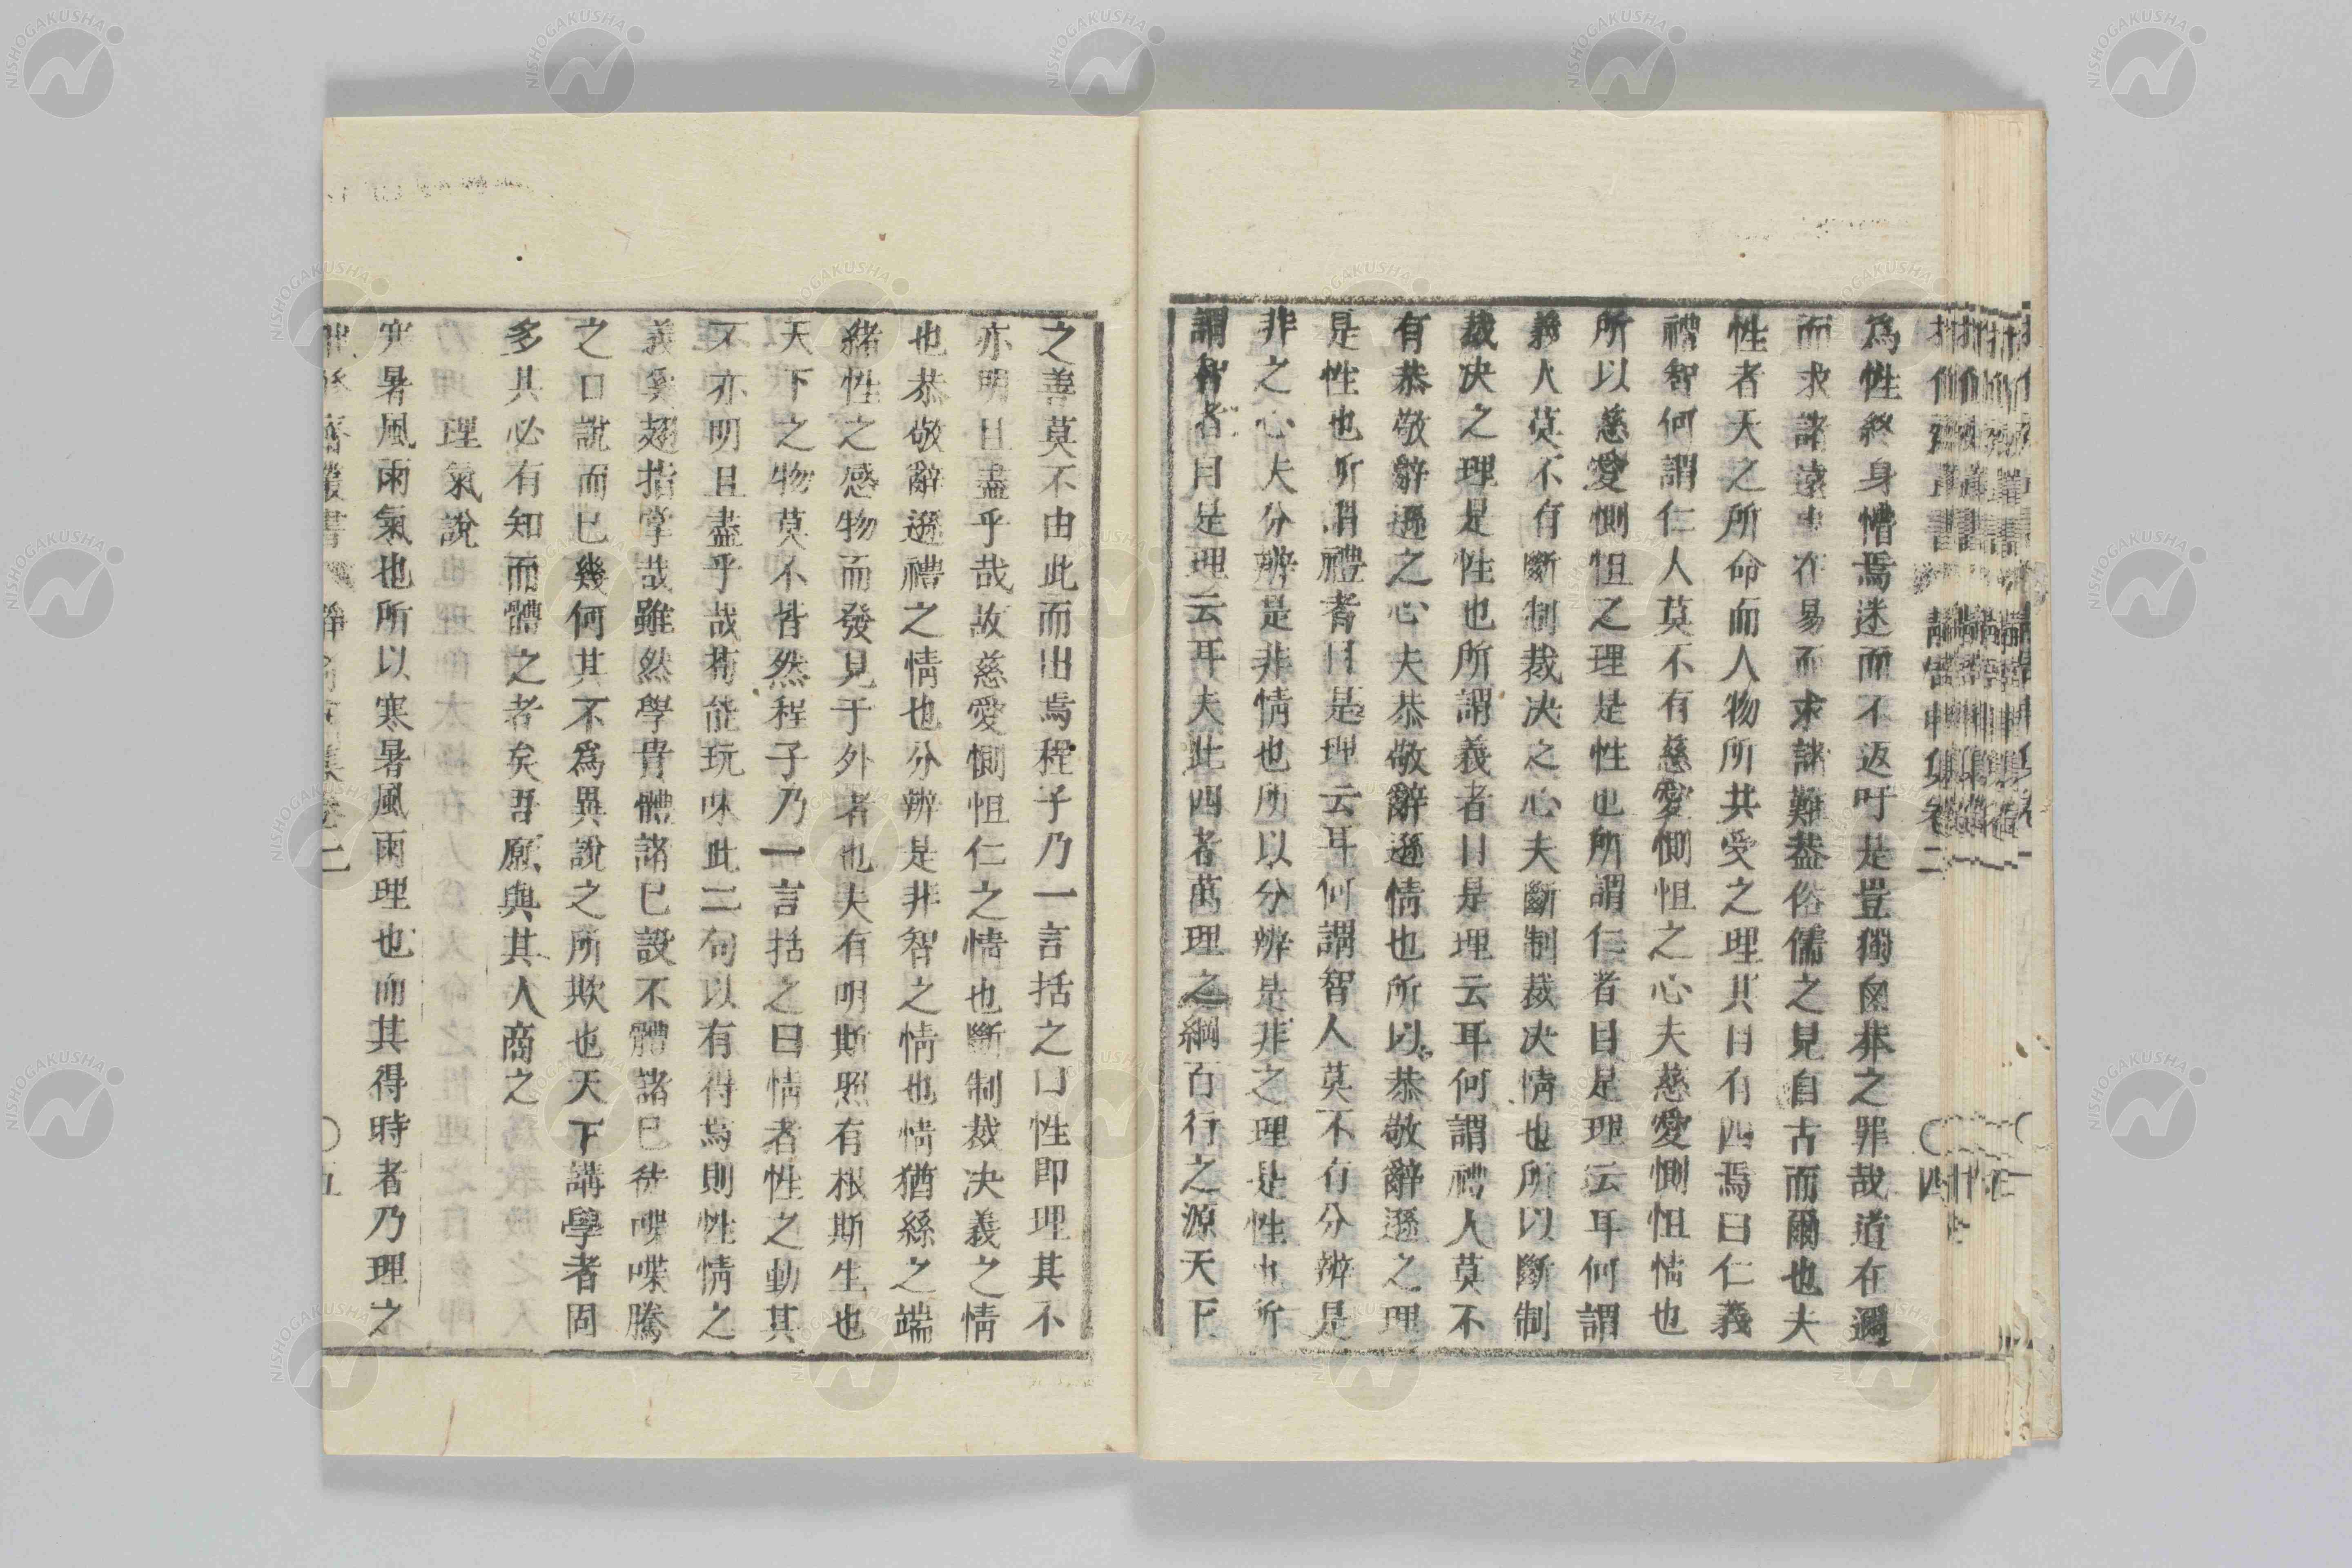 爲性終身懵焉迷而不返吁是豈獨鹵莽之罪哉道在邇
而求諸遠事在易而求諸難葢俗儒之見自古而爾也夫
性者天之所命而人物所其受之理其目有四焉曰仁義
禮智何謂仁人莫不有慈愛惻怛之心夫慈愛惻怛情也
所以慈愛惻怛之理是性也所謂仁者目是理云耳何謂
義人莫不有斷制裁决之心夫斷制裁决情也所以斷制
裁决之理是性也所謂義者目是理云耳何謂禮人莫不
有恭敬辭遜之心夫恭敬辭遜情也所以恭敬辭遜之理
是性也所謂禮者目是理云耳何謂智人莫不有分辨是
非之心夫分辨是非情也所以分辨是非之理是性也所
謂智者目是理云耳夫此四者萬理之綱百行之源天下
之善莫不由此而出焉程子乃一言括之曰性即理其不
亦明且盡乎哉故慈愛惻怛仁之情也斷制裁决義之情
也恭敬辭遜禮之情也分辨是非智之情也情猶絲之端
緒性之感物而發見于外者也夫有明斯照有根斯生也
天下之物莫不皆然程子乃一言括之曰情者性之動其
不亦明且盡乎哉苟能玩味此二句以有得焉則性情之
義奚翅指掌哉雖然學貴體諸己設不體諸己徒喋喋騰
之口說而已幾何其不爲異說之所欺也天下講學者固
多其必有知而體之者矣吾願與其人商之
理氣說
寒暑風雨氣也所以寒暑風雨理也而其得時者乃理之